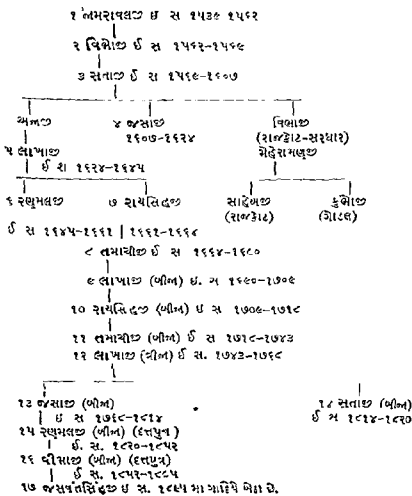 ૧ જામરાવલજી ઇ સ ૧૫૩૯ ૧૫૬૨
૨ વિભોજી ઈ સ ૧૫૬૨-૧૫૬૯
૩ સતાજી ઈ સ ૧૫૬૯-૧૬૦૭
અજાજી ૪ જસાજી વિભાજી
૧૬૦૭-૧૬૨૪ (રાજકોટ-સરધાર)
૫ લાખાજી મેહેરામણજી
ઈ સ ૧૬૨૪-૧૬૪૫
૬ રણમલજી ૭ રાયસિંહજી સાહેબજી કુંભોજી
(રાજકોટ) (ગોંડલ)
ઈ સ ૧૬૪૫-૧૬૬૧ ૧૬૬૧-૧૬૬૪
૮ તમાચીજી ઈ સ ૧૬૬૪-૧૬૯૦
૯ લાખાજી (બીજા) ઇ. સ ૧૬૯૦-૧૭૦૯
૧૦ રાયસિંહજી (બીજા) ઇ સ ૧૭૦૯-૧૭૧૮
૧૧ તમાચીજી (બીજા) ઈ સ ૧૭૧૮-૧૭૪૩
૧૨ લાખાજી (ત્રીજા) ઈ સ. ૧૭૪૩-૧૭૬૮
૧૩ જસાજી (બીજા) ૧૪ સતાજી (બીજા)
ઇ સ ૧૭૬૮-૧૮૧૪ ઈ સ ૧૮૧૪-૧૮૨૦
૧૫ રણમલજી (બીજા) (દત્તપુત્ર)
ઈ. સ. ૧૮૨૦-૧૮૫૨
૧૬ વીભાજી (બીજા) (દત્તપુત્ર)
ઈ સ. ૧૮૫૨-૧૮૯૫
૧૭ જસવંતસિંહજી ઇ સ. ૧૮૯૫ મા ગાદિયે બેઠા છે.